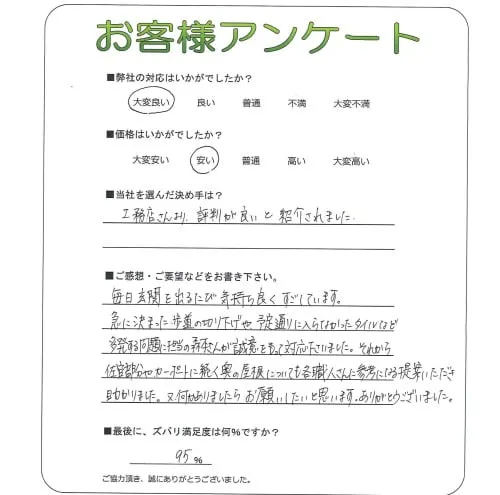 お客様アンケート
■弊社の対応はいかがでしたか?
大変良い 良い 普通 不満 大変不満
■価格はいかがでしたか?
大変安い 安い 普通 高い 大変高い
■当社を選んだ決め手は?
工務店さんより、評判が良いと紹介されました。
■ご感想・ご要望などをお書き下さい。
毎日玄関を出るたび気持ち良くすごしています。
急に決まった歩道の切り下げや予定通りに入らなかったタイルなど
多発する問題に担当の さんが誠意をもって対応下さいました。それから
佐官部分やカーポートに続く奥の屋根についても各職人さんに参考になる提案いただき
助かりました。又何かありましたらお願いしたいと思います。ありがとうございました。
■最後に、ズバリ満足度は何%ですか?
95%
ご協力頂き、誠にありがとうございました。